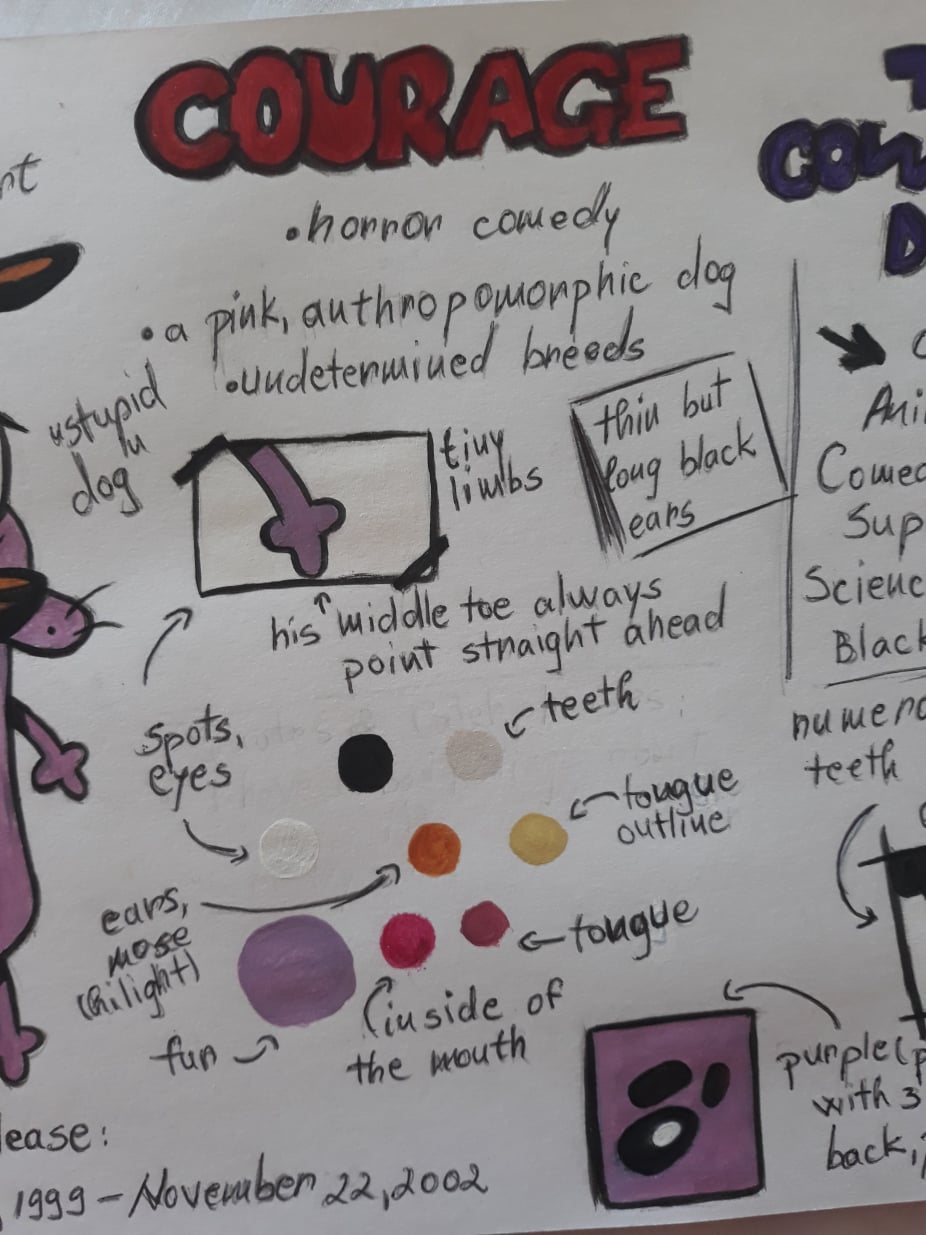 COURAGE
•horror comedy
•a pink, anthropomorphic dog
•undetermined breeds
"stupid
dog"
tiny
limbs
thin but
long black
ears
his middle toe always
point straight ahead
teeth
spots,
eyes
tongue
outline
ears,
nose
(hilight)
tongue
inside of
the mouth
fur
lease:
, 1999 – November 22, 2002
Comed
Sup
Scienc
Black
numero
teeth
purple (p
with 3
back, i